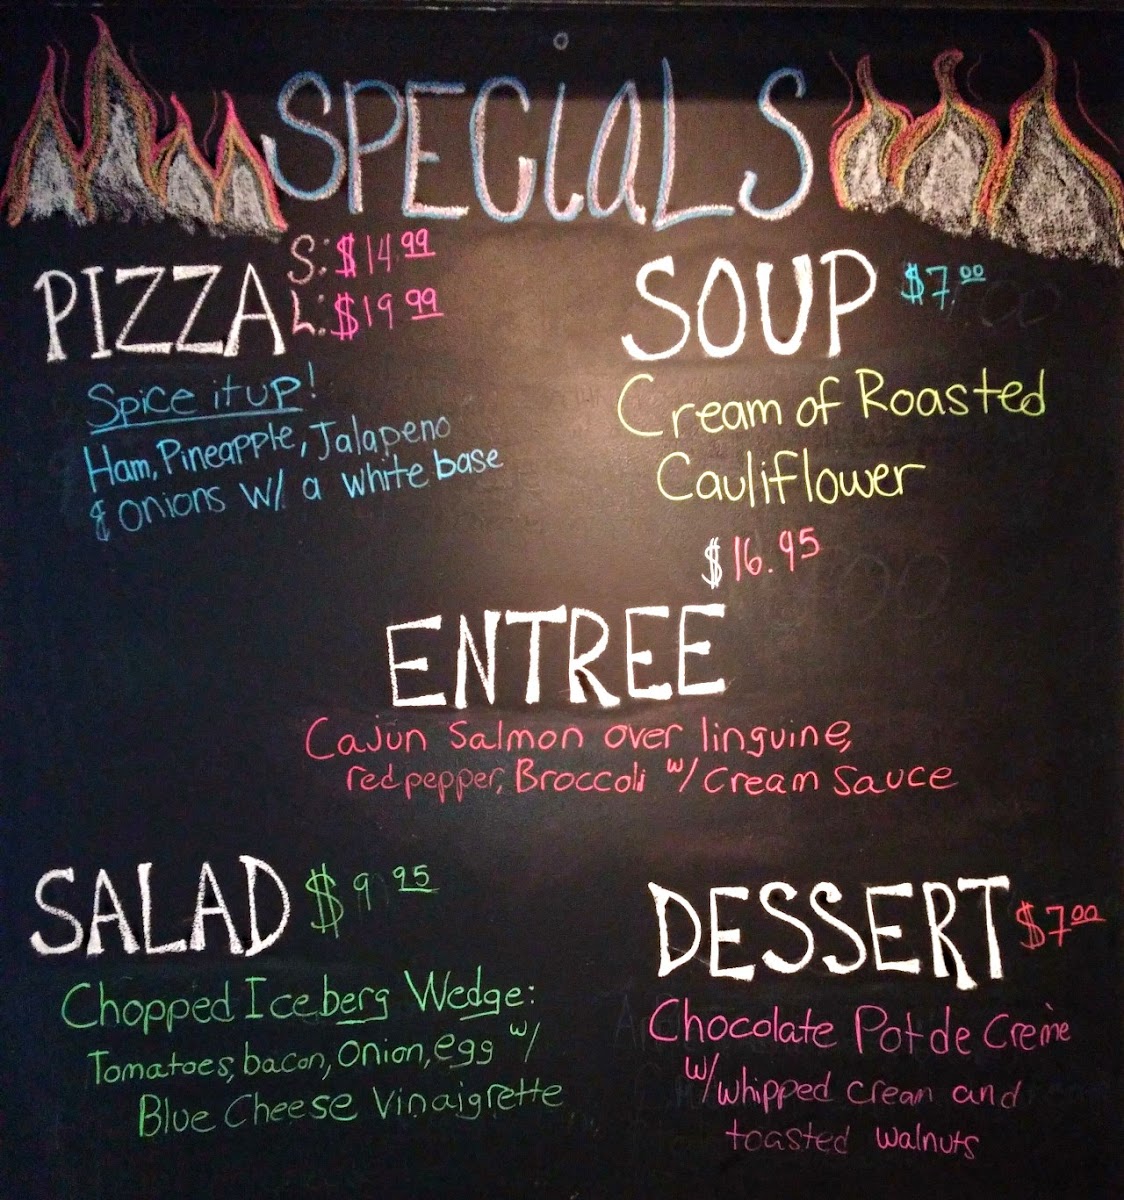 SPECiaLS
PIZZA S: $14.99
L: $19.99
Spice it up!
Ham, Pineapple, Jalapeno
& onions w/ a white base
SOUP $7.00
Cream of Roasted
Cauliflower
$16.95
ENTREE
Cajun Salmon over linguine,
red pepper, Broccoli w/ Cream Sauce
SALAD $9.95
Chopped Iceberg Wedge:
Tomatoes, bacon, Onion, egg w/
Blue Cheese Vinaigrette
DESSERT $7.00
Chocolate Pot de Creme
w/ whipped crean and
toasted walnuts